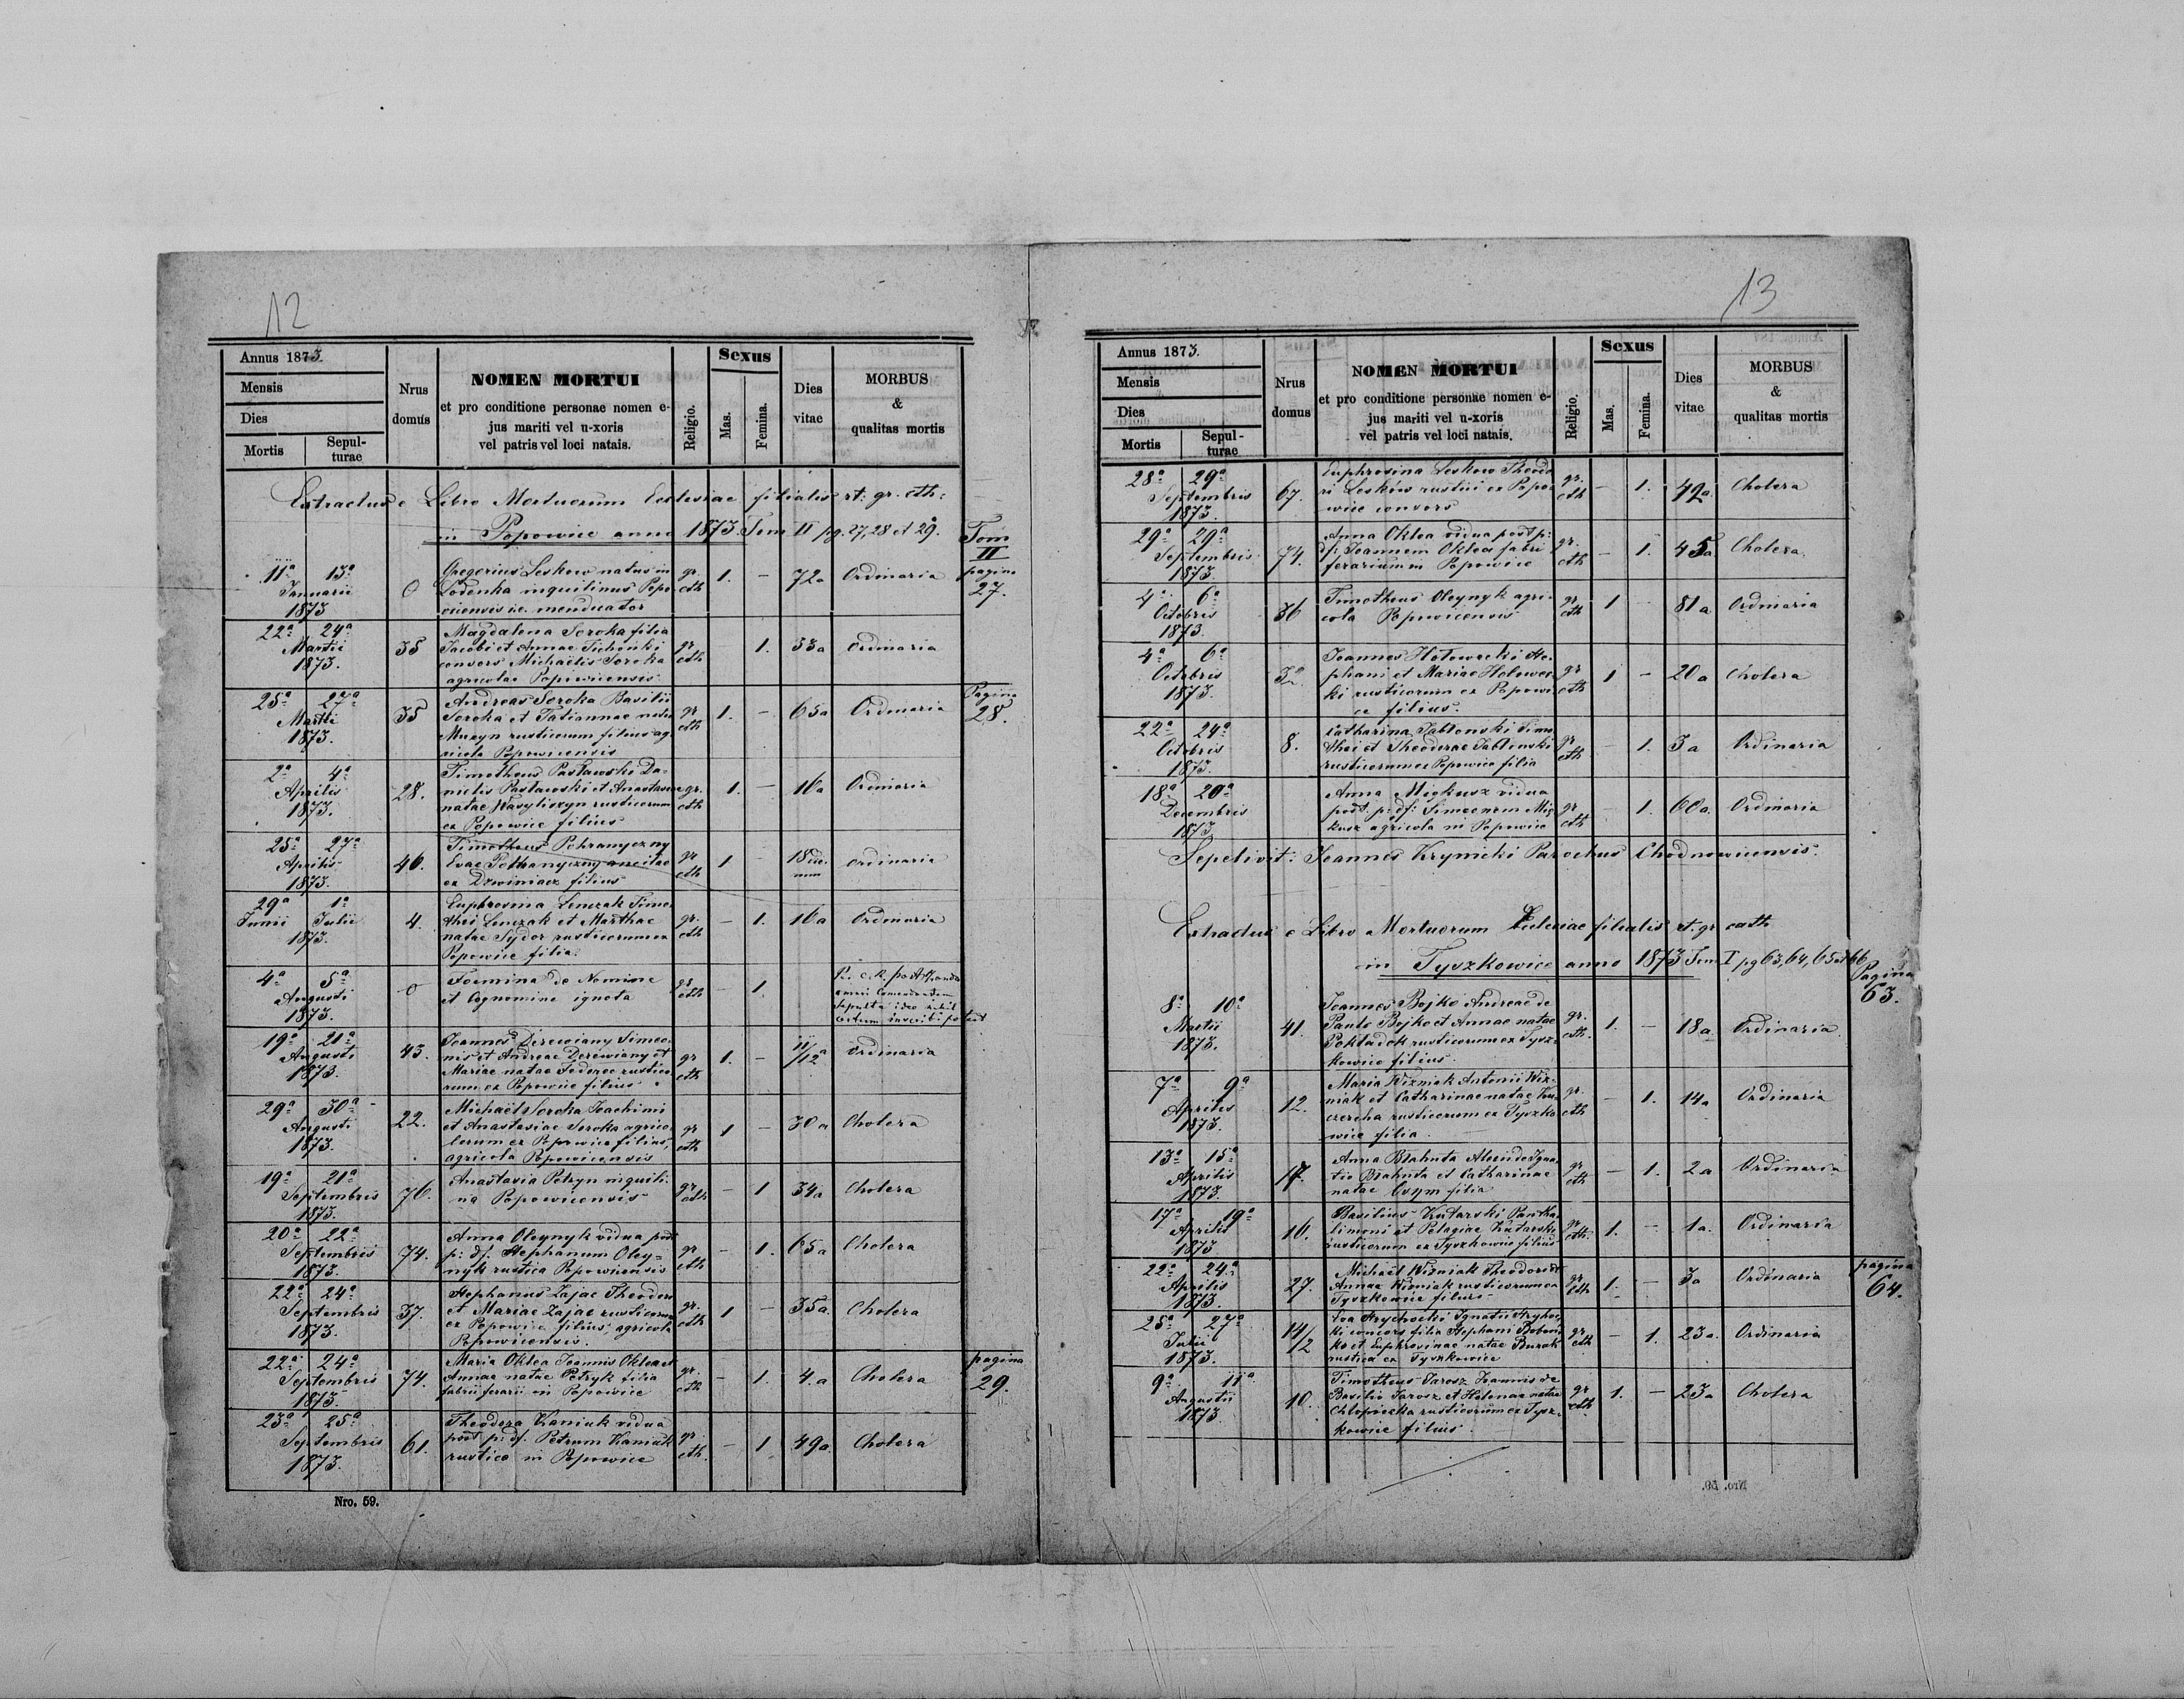 12
Annus 1873.
Mensis
Dies
Mortis
Sepul-
turae
Nrus
domus
NOMEN MORTUI
et pro conditione personae nomen e-
jus mariti vel u-xoris
vel patris vel loci natais.
Religio.
Sexus
Mas.
Femina.
Dies
vitae
MORBUS
&
qualitas mortis
Extractus e Libro Mortuorum Ecclesiae filialis rt: gr. cth:
in Popowice anno 1873. Tom II pg. 27, 28 et 29.
Tom
II
pagina
27.
11a 13a
Januarii
1873
0
Gregorius Leskow natus in
Lodenka inquilinus Popo
viiensis ie. menducator
gr.
cth
1. — 72a Ordinaria
22a 24a
Martii
1873.
35
Magdalena Soroka filia
Jacobi et Annae Tichonki
consors Michaelis Soroka
agricolae Popowicensis
gr
cth
1. 33a Ordinaria
25a 27a
Martii
1873.
35
Andreas Soroka Basilii
Soroka et Tatiannae natae
Muzyn rusticorum filius ag
ricola Popowicensis
gr
cth
1. — 65a Ordinaria
Pagina
28.
2a 4a
Aprilis
1873.
28.
Timotheus Pasławski Da-
nielis Pasławski et Anastasiae
natae Wasyliczyn rusticorum
ex Popowice filius
gr.
cth
1. — 16a Ordinaria
25a 27a
Aprilis
1873.
46.
Timotheus Pohranyczny
Evae Pohranyczny ancillae
ex Drwiniacz filius
gr
cth
1 — 18 die.
rum
ordinaria
29a 1a
Junii Julii
1873.
4.
Euphrosina Lenczak Timo
thei Lenczak et Marthae
natae Sydor rusticorum ex
Popowice filia.
gr.
cth
— 1. 16a Ordinaria
4a 5a
Augusti
1873.
0
Foemina de Nomine
et Cognomine ignota
gr
cth
— 1.
19a 21a
Augusti
1873.
43.
Joannes Derewiany Simeo
nis et Andreae Derewiany et
Mariae natae Fedorec rustico
rum ex Popowice filius
gr
cth
1. — 11/12a Ordinaria
29a 30a
Augusti
1873.
22.
Michaël Soroka Joachimi
et Anastasiae Soroka agrico
larum ex Popowice filius,
agricola Popowicensis
gr
cth
1 — 30a Cholera
19a 21a
Septembris
1873.
76.
Anastasia Petryn inquili-
na Popowicensis
gr
cth
— 1 34a Cholera
20a 22a
Septembris
1873.
74.
Anna Oleynyk vidua post
p: df. Stephanum Oley=
nyk rustica Popowicensis
gr
cth
— 1. 65a Cholera
22a 24a
Septembris
1873.
37.
Stephanus Zajac Theodori
et Mariae Zajac rusticorum
ex Popowice filius, agricola
Popowicensis.
gr.
cth
1 — 35a. Cholera
22a 24a
Septembris
1873.
74.
Maria Oklea Joannis Oklea et
Annae natae Petryk filia
fabrii ferarii in Popowice
gr.
cth
— 1. 4.a Cholera
pagina
29.
23a 25a
Septembris
1873.
61.
Theodora Kaniuk vidua
post p: df. Petrum Kaniuk
rustica in Popowice
gr.
cth.
— 1 49a. Cholera
Nro. 59.
13
Annus 1873.
Mensis
Dies
Mortis
Sepul-
turae
Nrus
domus
NOMEN MORTUI
et pro conditione personae nomen e-
jus mariti vel u-xoris
vel patris vel loci natais.
Religio.
Sexus
Mas.
Femina.
Dies
vitae
MORBUS
&
qualitas mortis
28a 29a
Septembris
1873.
67.
Euphrosina Leskow Theodo
ri Leskow rustici ex Popo
wice consors
gr.
cth
— 1. 42a. Cholera
29a 29a
Septembris
1873.
74.
Anna Oklea vidua post p:
df: Joannem Oklea fabri
ferarium in Popowice
gr.
cth
— 1. 45a Cholera.
4a 6a
Octobris
1873.
36
Timotheus Oleynyk agri-
cola Popowicensis
gr
cth
1 — 81a Ordinaria
4a 6a
Octobris
1873.
32.
Joannes Hołowecki Ste-
phani et Mariae Hołowec
ki rusticorum ex Popowi
ce filius.
gr
cth
1 — 20a Cholera
22a 24a
Octobris
1873.
8.
Catharina Jablonski Timo
thei et Theodorae Jablonski
rusticorum ex Popowice filia
gr
cth
— 1. 3a Ordinaria
18a 20a
Decembris
1873.
Anna Migkusz vidua
post. p: df: Simeonem Mig
kusz agricola in Popowice
gr
cth
1. 60a. Ordinaria
Sepelivit: Joannes Krynicki Parochus Chodnowicensis.
Extractus e Libro Mortuorum Ecclesiae filialis rt. gr cath
in Tyszkowice anno 1873 Tom I pg 63, 64, 65 et 66
Pagina
63.
8a 10a
Martii
1873.
41.
Joannes Bojko Andreae de
Paulo Bojko et Annae natae
Pokładok rusticorum ex Tysz-
kowice filius
gr.
cth.
1. — 18a. Ordinaria
7a 9a
Aprilis
1873.
12.
Maria Wizniak Antonii Wiz-
niak et Catharinae natae Ku
czercha rusticorum ex Tyszko
wice filia.
gr.
cth
— 1. 14a Ordinaria
13a 15a
Aprilis
1873.
17.
Anna Błahuta Alexii de Igna
tio Błahuta et Catharinae
natae Osym filia
gr
cth
— 1. 2a Ordinaria
17a 19a
Aprilis
1873
16.
Basilius Kutarski Pantha
limoni et Pelagiae Kutarski
rusticorum ex Tyszkowice filius
gr
cth.
1. — 1a. Ordinaria
22a 24a
Aprilis
1873.
27.
Michaël Wizniak Theodori et
Annae Wizniak rusticorum ex
Tyszkowice filius
gr
cth
1. — 3a Ordinaria
pagina
64.
25a 27a
Julii
1873.
14/2
Eva Hrychocki Ignatii Hrychoc
ki consors filia Stephani
et Euphrosinae natae Burak
rustica ex Tyszkowice
gr
cth
— 1. 23a. Ordinaria
9a 11a
Augustii
1873.
10.
Timotheus Jarosz Joannis de
Basilio Jarosz et Helenae natae
Chłopieczka rusticorum ex Tysz-
kowice filius.
gr
cth
1. — 23a Cholera
Nro. 59.